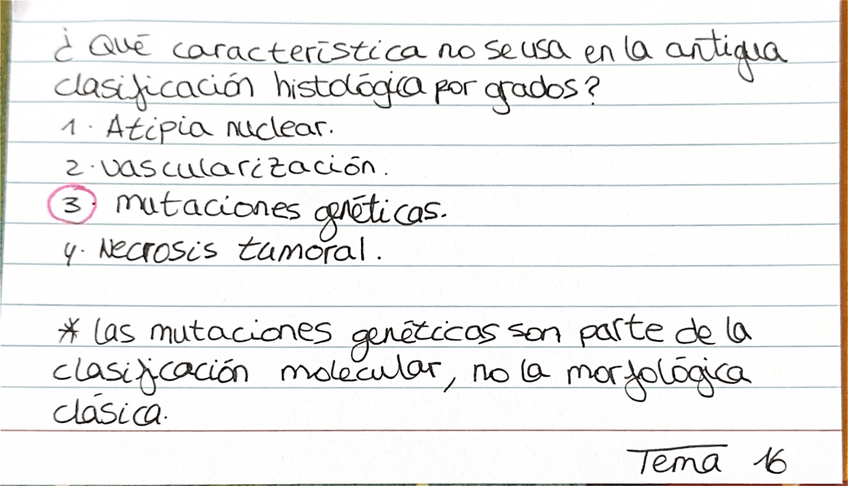 ¿Qué característica no se usa en la antigua
clasificación histológica por grados?
1. Atipia nuclear.
2. vascularización.
3. mutaciones genéticas.
4. Necrosis tumoral.
* las mutaciones genéticas son parte de la
clasificación molecular, no la morfológica
clásica.
Tema 16